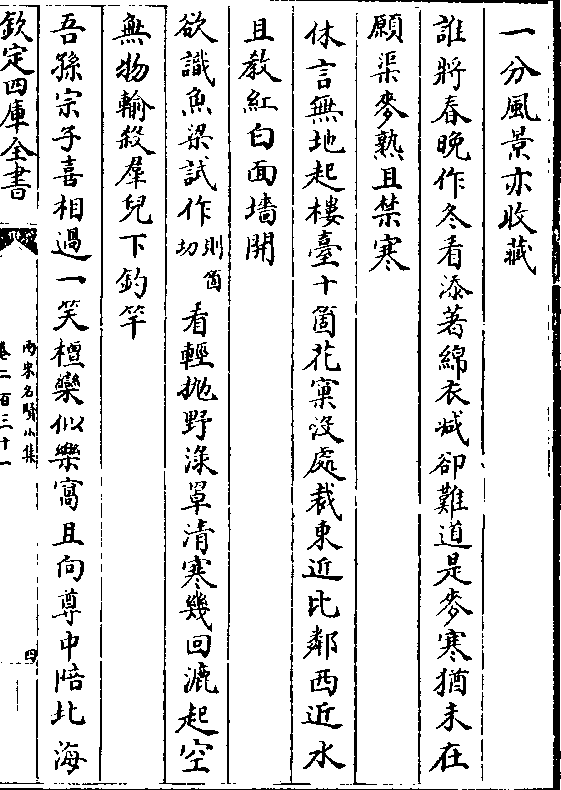 一分風景亦收藏
誰將春晚作冬看添著綿衣减卻難道是麥寒猶未在
願渠麥熟且禁寒
休言無地起樓臺十箇花窠没處裁東近比鄰西近水
且教紅白面墻開
欲識魚梁試作則箇切看輕抛野渌罩清寒幾回漉起空
無物輸殺羣兒下釣竿
吾孫宗子喜相過一笑檀欒似樂窩且向尊中陪北海
欽定四庫全書
兩宋名賢小集
卷二百三十一
四